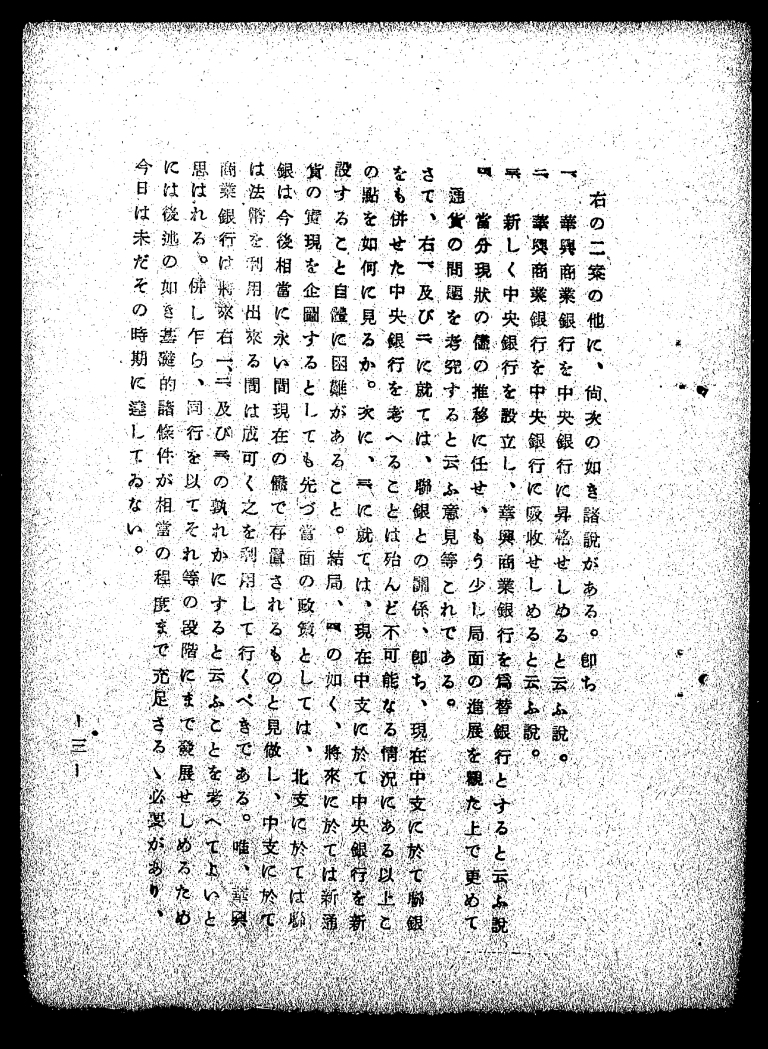 右の二案の他に、尙次の如き諸說がある。卽ち
一、華興商業銀行を中央銀行に昇格せしめると云ふ說。
二、華興商業銀行を中央銀行に吸收せしめると云ふ說。
三、新しく中央銀行を設立し、華興商業銀行を爲替銀行とすると云ふ說。
四、當分現狀の儘の推移に任せ、もう少し局面の進展を觀た上で更めて
通貨の問題を考究すると云ふ意見等これである。
さて、右一、及び二に就ては、聯銀との關係、卽ち、現在中支に於て聯銀
をも併せた中央銀行を考へることは殆んど不可能なる情況にある以上こ
の點を如何に見るか。次に、三に就ては、現在中支に於て中央銀行を新
設すること自體に困難があること。結局、四の如く、將來に於ては新通
貨の實現を企圖するとしても先づ當面の政策としては、北支に於ては聯
銀は今後相當に永い間現在の儘で存置されるものと見做し、中支に於て
は法幣を利用出來る間は成可く之を利用して行くべきである。唯、華興
商業銀行は將來右一、二、及び三の孰れかにすると云ふことを考へてよいと
思はれる。併し乍ら、同行を以てそれ等の段階にまで發展せしめるため
には後述の如き基礎的諸條件が相當の程度まで充足さるゝ必要があり、
今日は未だその時期に達してゐない。
— 三 —